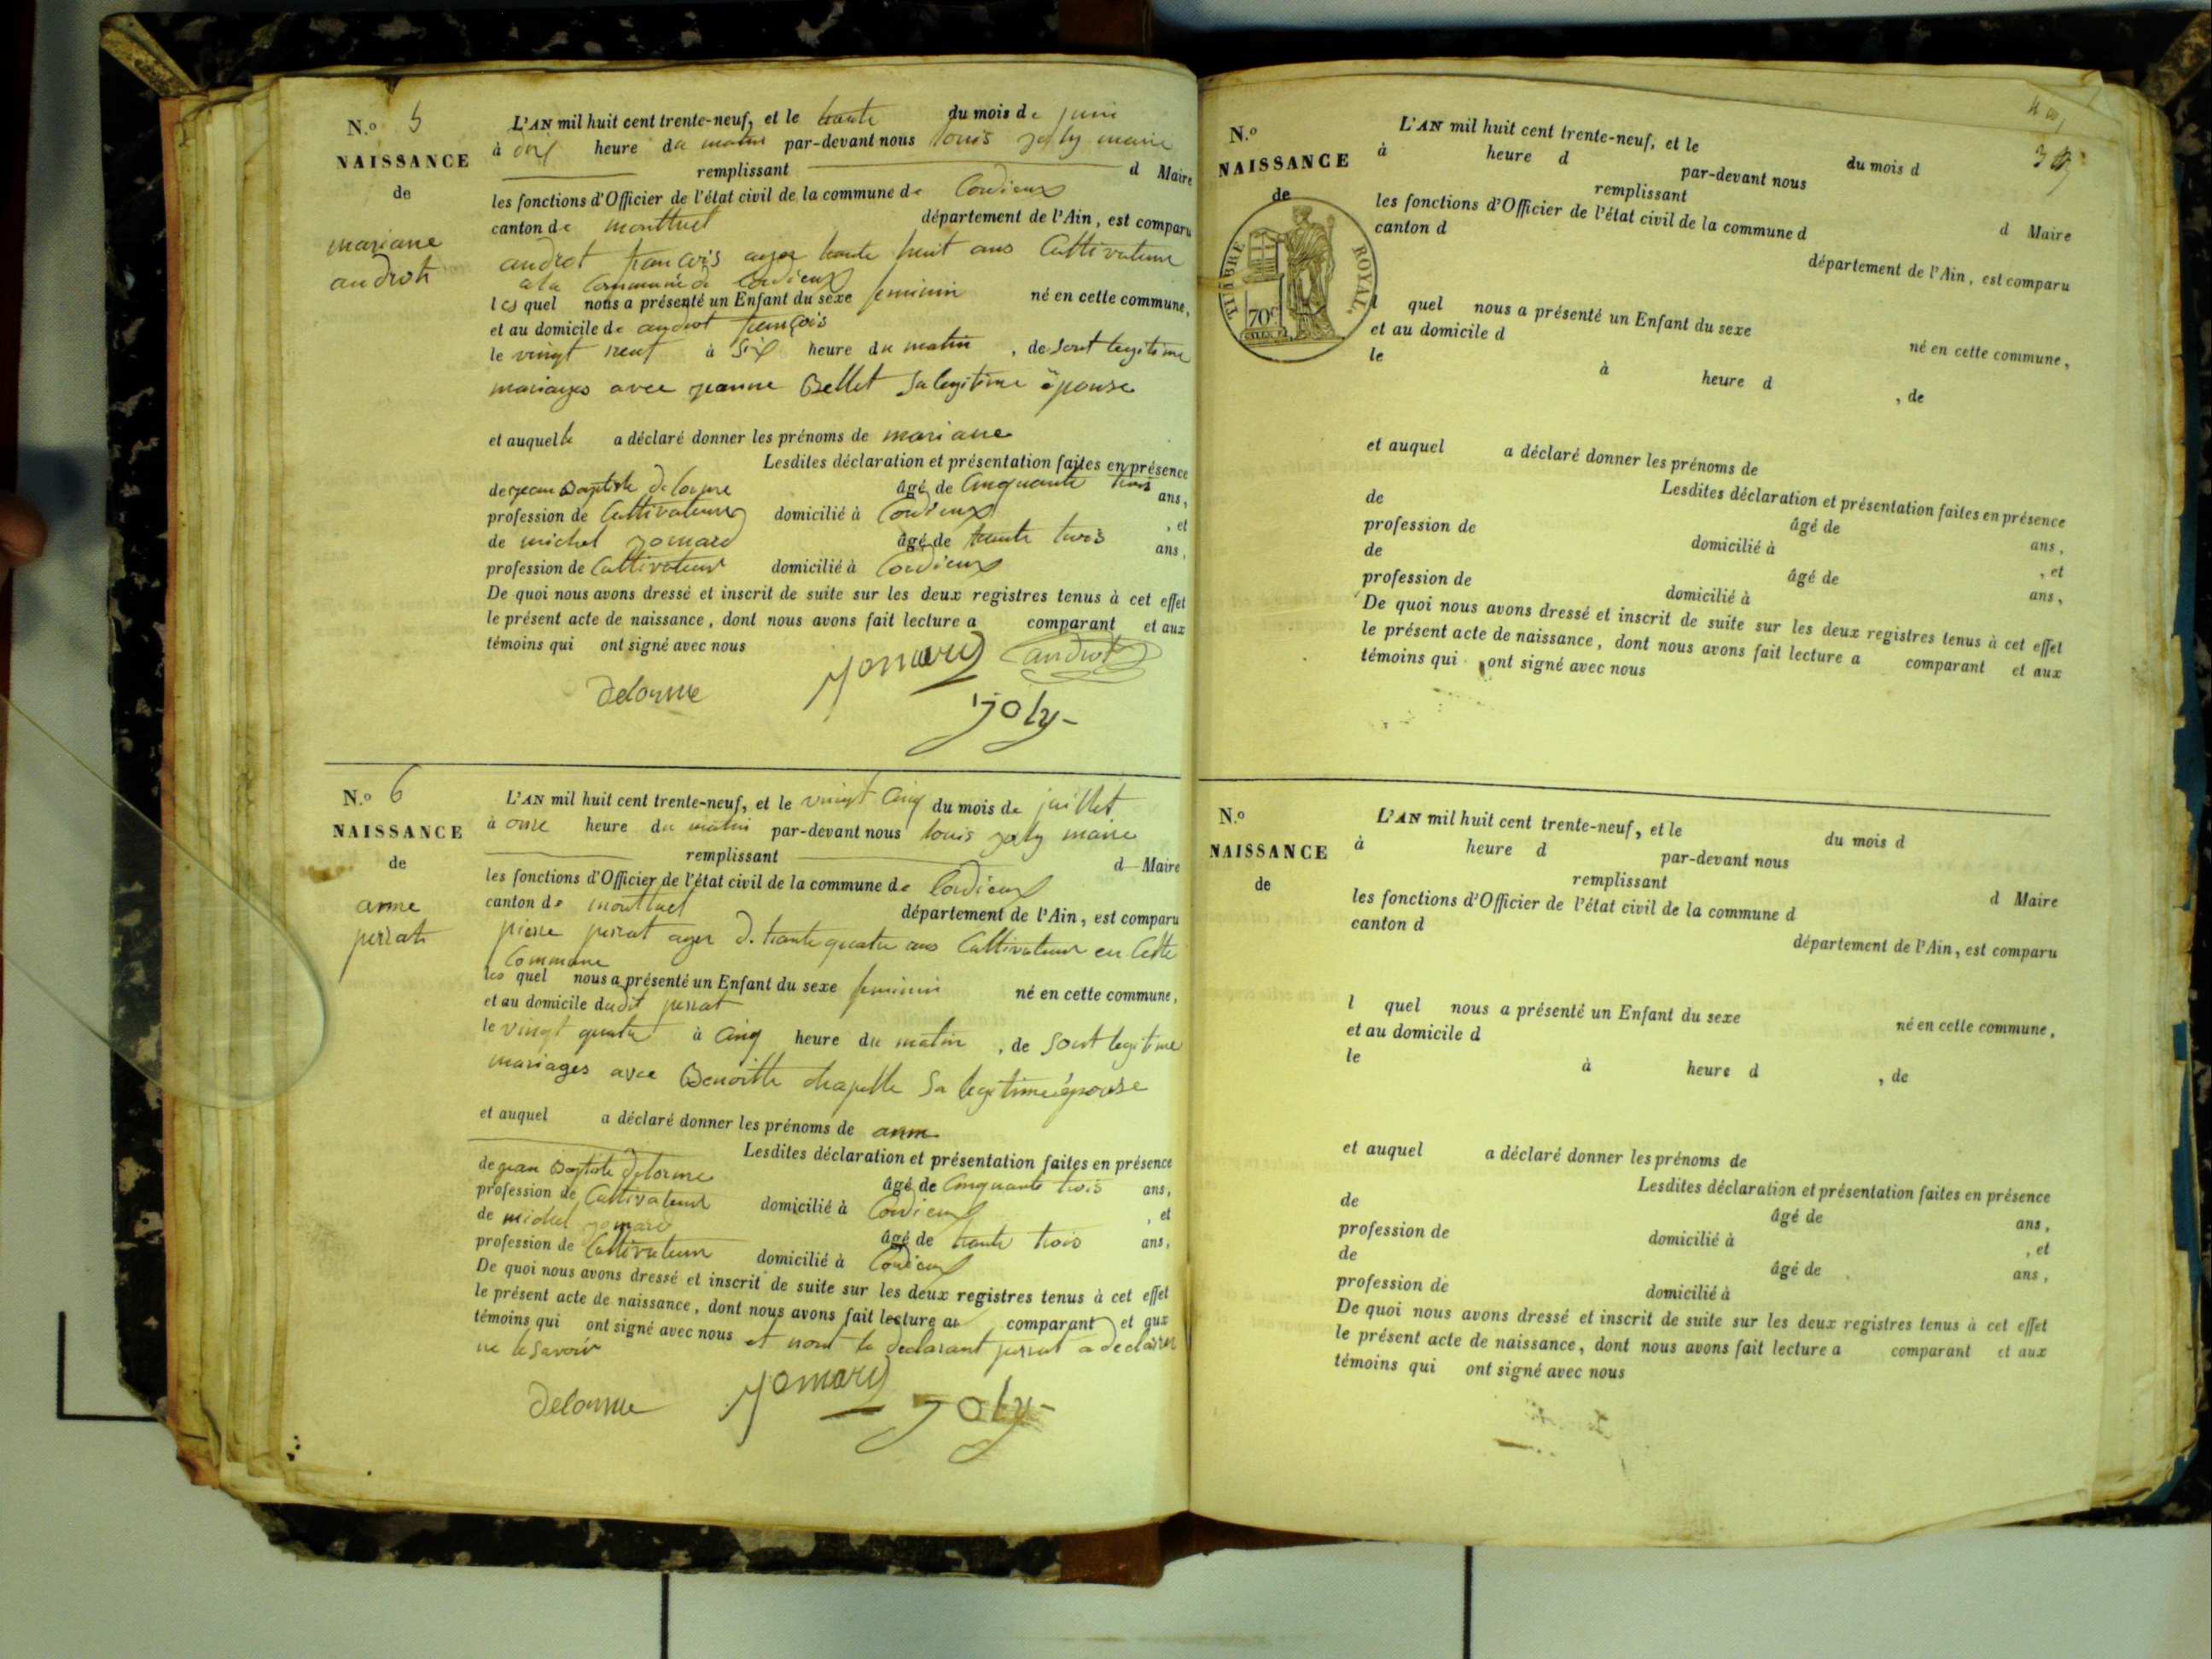 N.º 5
NAISSANCE
de
mariane
androt
L'AN mil huit cent trente-neuf, et le trante du mois de juin
à heure du matin par-devant nous louis joly maire
remplissant d Maire
les fonctions d'Officier de l'état civil de la commune de Cordieux
canton de montluel département de l'Ain, est comparu
androt francois ager trante huit ans Cultivateur
a la Commune de Cordieux
les quel nous a présenté un Enfant du sexe feminin né en cette commune,
et au domicile de androt françois
le vingt neuf à Six heure du matin, de sont legitime
mariages avec jeanne Bellet Sa legitime épouse
et auquel le a déclaré donner les prénoms de mariane
Lesdites déclaration et présentation faites en présence
de jean Baptiste delorme âgé de Cinquante trois ans,
profession de Cultivateur domicilié à Cordieux, et
de michel jomard âgé de trante trois ans,
profession de Cultivateur domicilié à Cordieux
De quoi nous avons dressé et inscrit de suite sur les deux registres tenus à cet effet
le présent acte de naissance, dont nous avons fait lecture a comparant et aux
témoins qui ont signé avec nous
jomard androt
Delorme
joly
N.º 6
NAISSANCE
de
anne
perrat
L'AN mil huit cent trente-neuf, et le vingt Cinq du mois de juillet
à onze heure du matin par-devant nous louis joly maire
remplissant d Maire
les fonctions d'Officier de l'état civil de la commune de Cordieux
canton de montluel département de l'Ain, est comparu
pierre perrat ager de trante quatre ans Cultivateur en Cette
Commune
les quel nous a présenté un Enfant du sexe feminin né en cette commune,
et au domicile dudit perrat
le vingt quatre à Cinq heure du matin, de sont legitime
mariages avec Benoitte chapelle Sa legitime épouse
et auquel a déclaré donner les prénoms de anne
Lesdites déclaration et présentation faites en présence
de jean Baptiste delorme âgé de Cinquante trois ans,
profession de Cultivateur domicilié à Cordieux, et
de michel jomard âgé de trante trois ans,
profession de Cultivateur domicilié à Cordieux
De quoi nous avons dressé et inscrit de suite sur les deux registres tenus à cet effet
le présent acte de naissance, dont nous avons fait lecture au comparant et aux
témoins qui ont signé avec nous et nont le declarant perrat a declairer
ne le Savoir
Delorme jomard joly
N.º
NAISSANCE
de
TIMBRE ROYAL.
70c
L'AN mil huit cent trente-neuf, et le du mois d
à heure d par-devant nous
remplissant d Maire
les fonctions d'Officier de l'état civil de la commune d
canton d département de l'Ain, est comparu
l quel nous a présenté un Enfant du sexe né en cette commune,
et au domicile d
le à heure d , de
et auquel a déclaré donner les prénoms de
Lesdites déclaration et présentation faites en présence
de âgé de ans,
profession de domicilié à , et
de âgé de ans,
profession de domicilié à
De quoi nous avons dressé et inscrit de suite sur les deux registres tenus à cet effet
le présent acte de naissance, dont nous avons fait lecture a comparant et aux
témoins qui ont signé avec nous
N.º
NAISSANCE
de
L'AN mil huit cent trente-neuf, et le du mois d
à heure d par-devant nous
remplissant d Maire
les fonctions d'Officier de l'état civil de la commune d
canton d département de l'Ain, est comparu
l quel nous a présenté un Enfant du sexe né en cette commune,
et au domicile d
le à heure d , de
et auquel a déclaré donner les prénoms de
Lesdites déclaration et présentation faites en présence
de âgé de ans,
profession de domicilié à , et
de âgé de ans,
profession de domicilié à
De quoi nous avons dressé et inscrit de suite sur les deux registres tenus à cet effet
le présent acte de naissance, dont nous avons fait lecture a comparant et aux
témoins qui ont signé avec nous